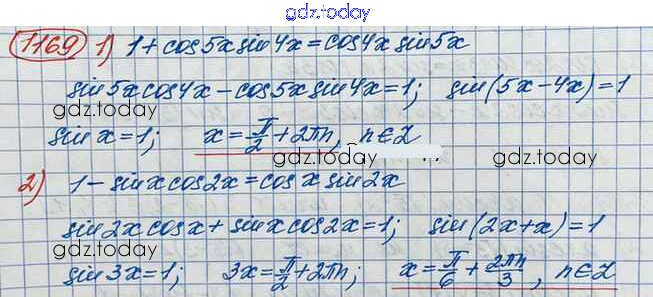 gdz.today
1169 1) 1 + cos5x sin4x = cos4x sin5x
sin5x cos4x - cos5x sin4x = 1; sin(5x - 4x) = 1
gdz.today
sin x = 1; x = π/2 + 2πn, n ∈ Z
gdz.today gdz.today
2) 1 - sinx cos2x = cosx sin2x
sin2x cosx + sinx cos2x = 1; sin(2x + x) = 1
gdz.today gdz.today
sin3x = 1; 3x = π/2 + 2πn; x = π/6 + 2πn/3, n ∈ Z
gdz.today